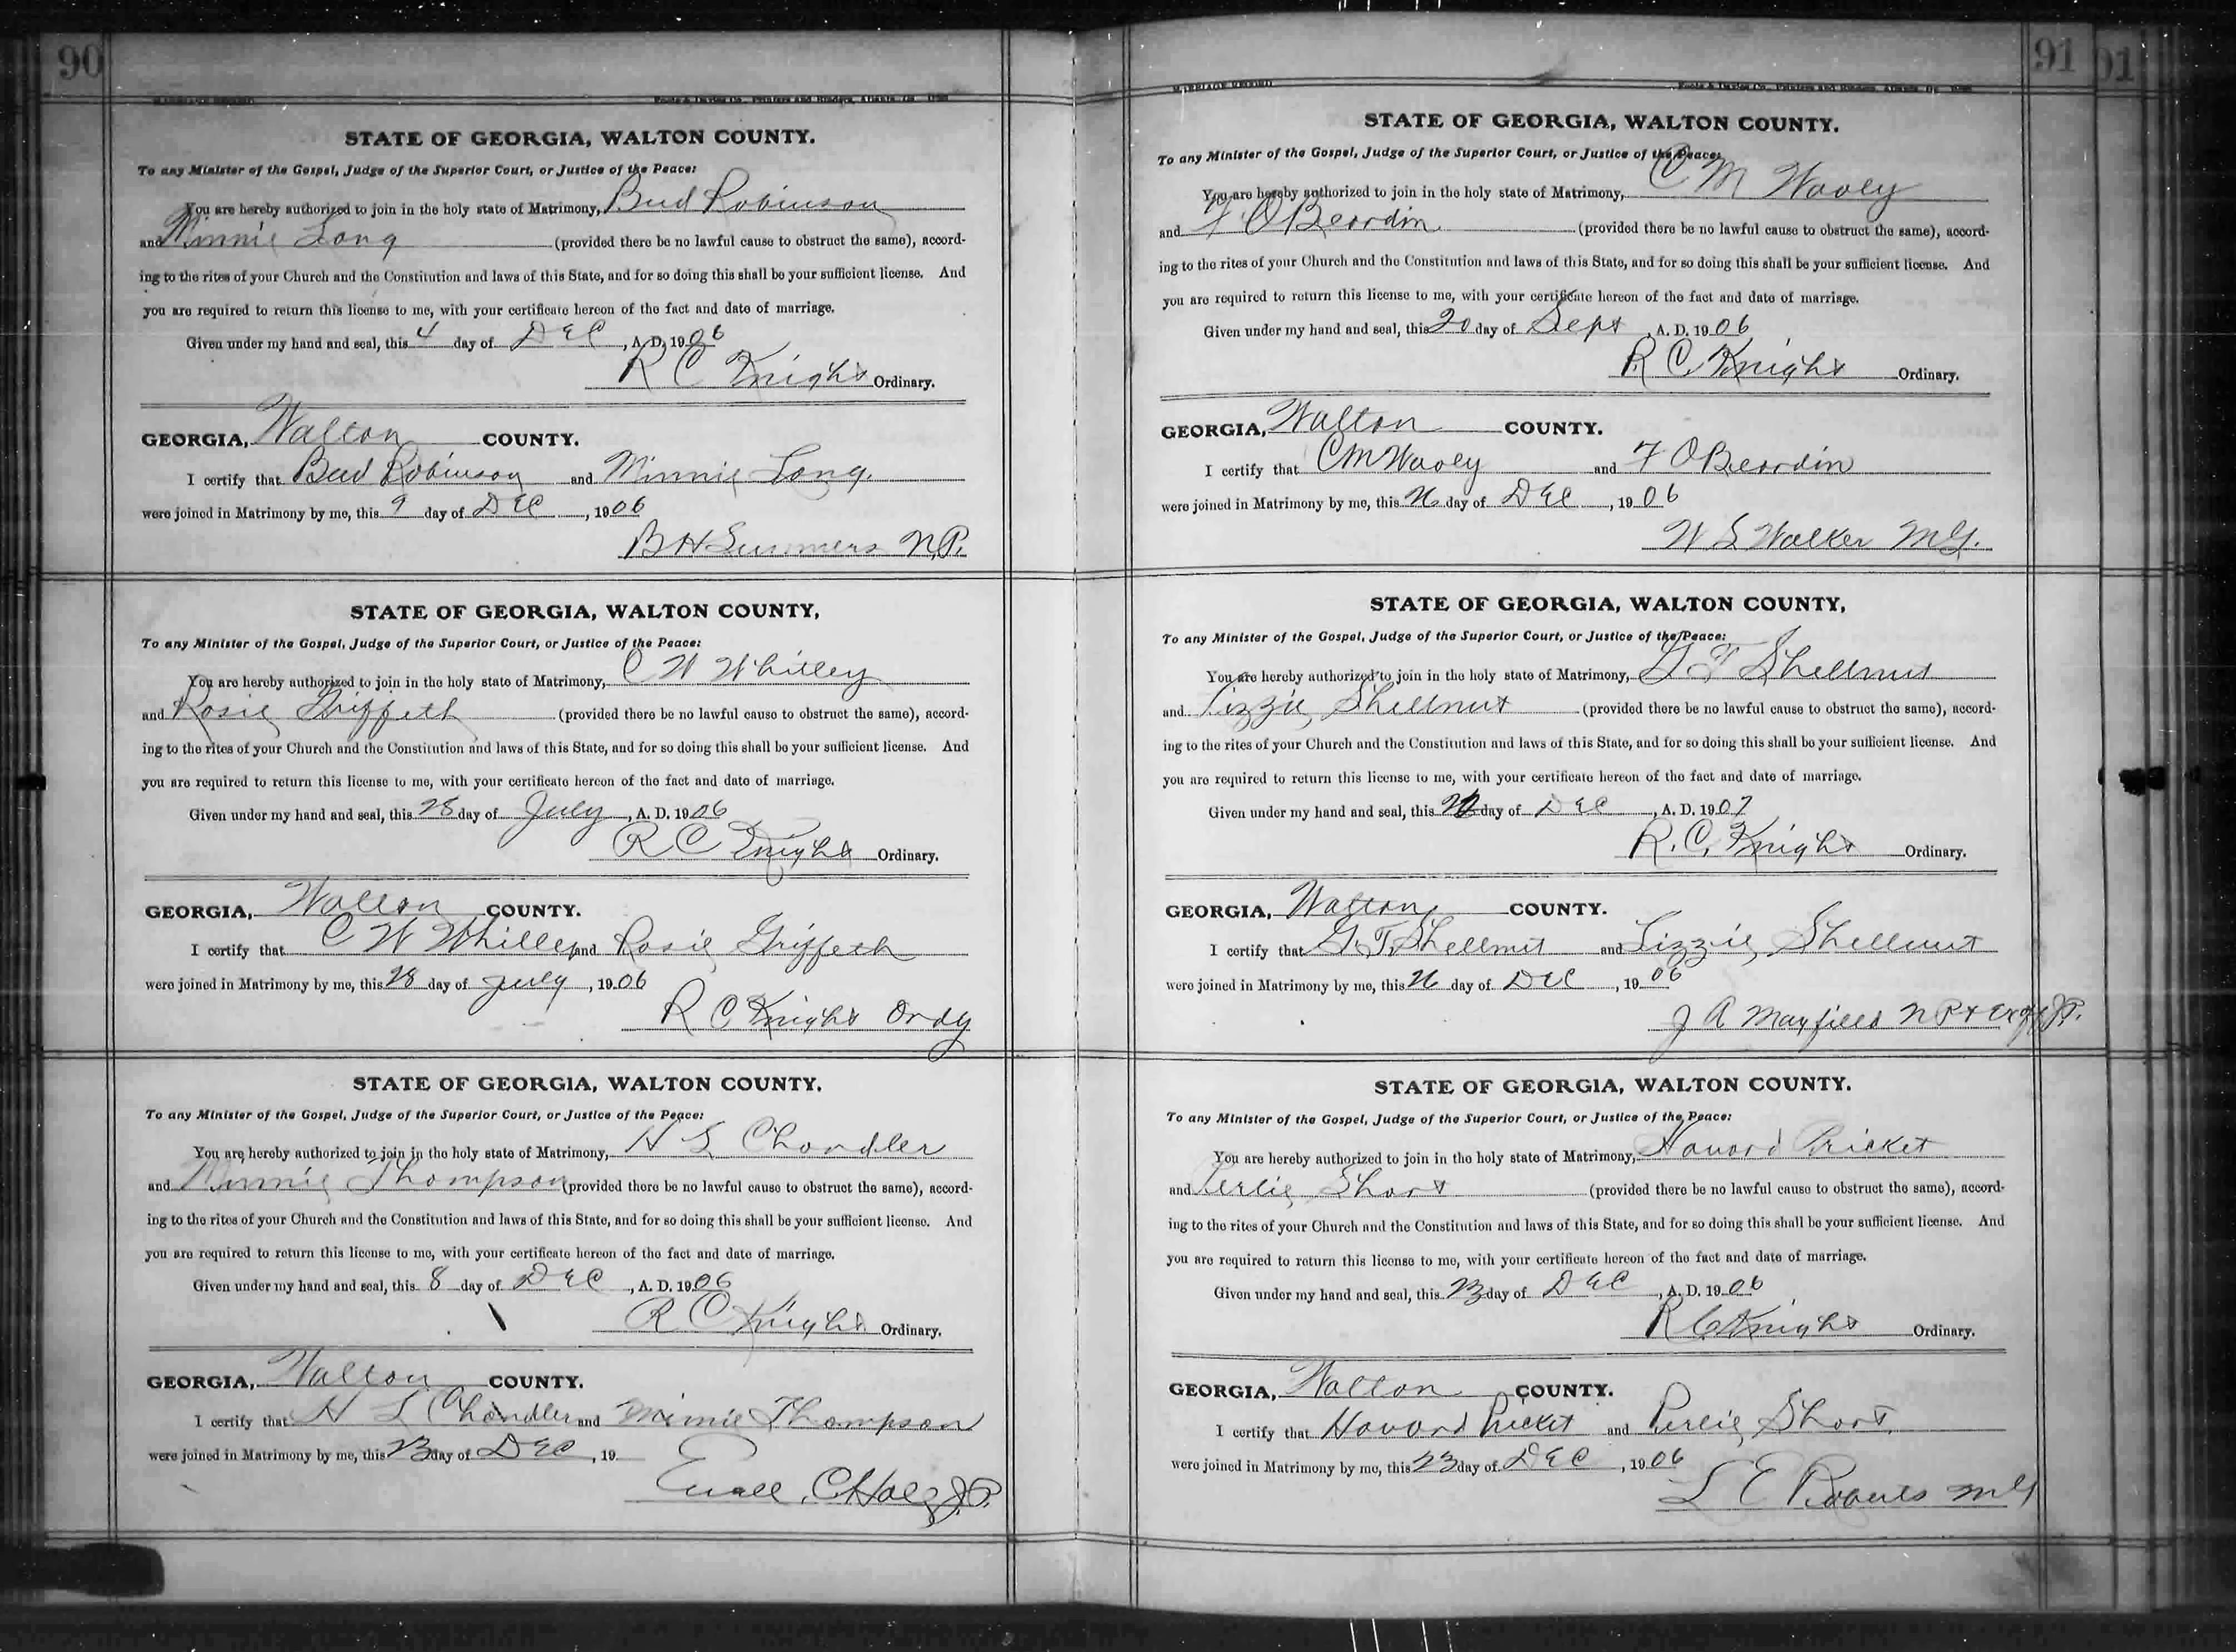 90
MARRIAGE RECORD
Foote & Davies Co., Printers and Binders, Atlanta, Ga.
STATE OF GEORGIA, WALTON COUNTY.
To any Minister of the Gospel, Judge of the Superior Court, or Justice of the Peace:
You are hereby authorized to join in the holy state of Matrimony, Bud Robinson
and Minnie Long (provided there be no lawful cause to obstruct the same), accord-
ing to the rites of your Church and the Constitution and laws of this State, and for so doing this shall be your sufficient license. And
you are required to return this license to me, with your certificate hereon of the fact and date of marriage.
Given under my hand and seal, this 4 day of DEC, A. D. 1906
R C Knight Ordinary.
GEORGIA, Walton COUNTY.
I certify that Bud Robinson and Minnie Long.
were joined in Matrimony by me, this 9 day of DEC, 1906
B H Summers N.P.
STATE OF GEORGIA, WALTON COUNTY,
To any Minister of the Gospel, Judge of the Superior Court, or Justice of the Peace:
You are hereby authorized to join in the holy state of Matrimony, C W Whilley
and Rosie Griffeth (provided there be no lawful cause to obstruct the same), accord-
ing to the rites of your Church and the Constitution and laws of this State, and for so doing this shall be your sufficient license. And
you are required to return this license to me, with your certificate hereon of the fact and date of marriage.
Given under my hand and seal, this 28 day of July, A. D. 1906
R C Knight Ordinary.
GEORGIA, Walton COUNTY.
I certify that C W Whilley and Rosie Griffeth
were joined in Matrimony by me, this 28 day of July, 1906
R C Knight Ordy
STATE OF GEORGIA, WALTON COUNTY.
To any Minister of the Gospel, Judge of the Superior Court, or Justice of the Peace:
You are hereby authorized to join in the holy state of Matrimony, H L Chandler
and Minnie Thompson (provided there be no lawful cause to obstruct the same), accord-
ing to the rites of your Church and the Constitution and laws of this State, and for so doing this shall be your sufficient license. And
you are required to return this license to me, with your certificate hereon of the fact and date of marriage.
Given under my hand and seal, this 8 day of DEC, A. D. 1906
R C Knight Ordinary.
GEORGIA, Walton COUNTY.
I certify that H L Chandler and Minnie Thompson
were joined in Matrimony by me, this 23 day of DEC, 19
J.P.
91
91
MARRIAGE RECORD
Foote & Davies Co., Printers and Binders, Atlanta, Ga.
STATE OF GEORGIA, WALTON COUNTY.
To any Minister of the Gospel, Judge of the Superior Court, or Justice of the Peace:
You are hereby authorized to join in the holy state of Matrimony, C M Wooley
and F O Beardin (provided there be no lawful cause to obstruct the same), accord-
ing to the rites of your Church and the Constitution and laws of this State, and for so doing this shall be your sufficient license. And
you are required to return this license to me, with your certificate hereon of the fact and date of marriage.
Given under my hand and seal, this 20 day of Sept, A. D. 1906
R. C. Knight Ordinary.
GEORGIA, Walton COUNTY.
I certify that C M Wooley and F O Beardin
were joined in Matrimony by me, this 26 day of DEC, 1906
W S Walker M.G.
STATE OF GEORGIA, WALTON COUNTY,
To any Minister of the Gospel, Judge of the Superior Court, or Justice of the Peace:
You are hereby authorized to join in the holy state of Matrimony, G. T Shellnut
and Lizzie Shellnut (provided there be no lawful cause to obstruct the same), accord-
ing to the rites of your Church and the Constitution and laws of this State, and for so doing this shall be your sufficient license. And
you are required to return this license to me, with your certificate hereon of the fact and date of marriage.
Given under my hand and seal, this day of DEC, A. D. 1907
R. C. Knight Ordinary.
GEORGIA, Walton COUNTY.
I certify that G. T. Shellnut and Lizzie Shellnut
were joined in Matrimony by me, this 26 day of DEC, 1906
J A Mayfield N P & Ex off J.P.
STATE OF GEORGIA, WALTON COUNTY.
To any Minister of the Gospel, Judge of the Superior Court, or Justice of the Peace:
You are hereby authorized to join in the holy state of Matrimony, Havard Pricket
and Perlie Short (provided there be no lawful cause to obstruct the same), accord-
ing to the rites of your Church and the Constitution and laws of this State, and for so doing this shall be your sufficient license. And
you are required to return this license to me, with your certificate hereon of the fact and date of marriage.
Given under my hand and seal, this 23 day of DEC, A. D. 1906
R C Knight Ordinary.
GEORGIA, Walton COUNTY.
I certify that Havard Pricket and Perlie Short.
were joined in Matrimony by me, this 23 day of DEC, 1906
L E Roberts MG